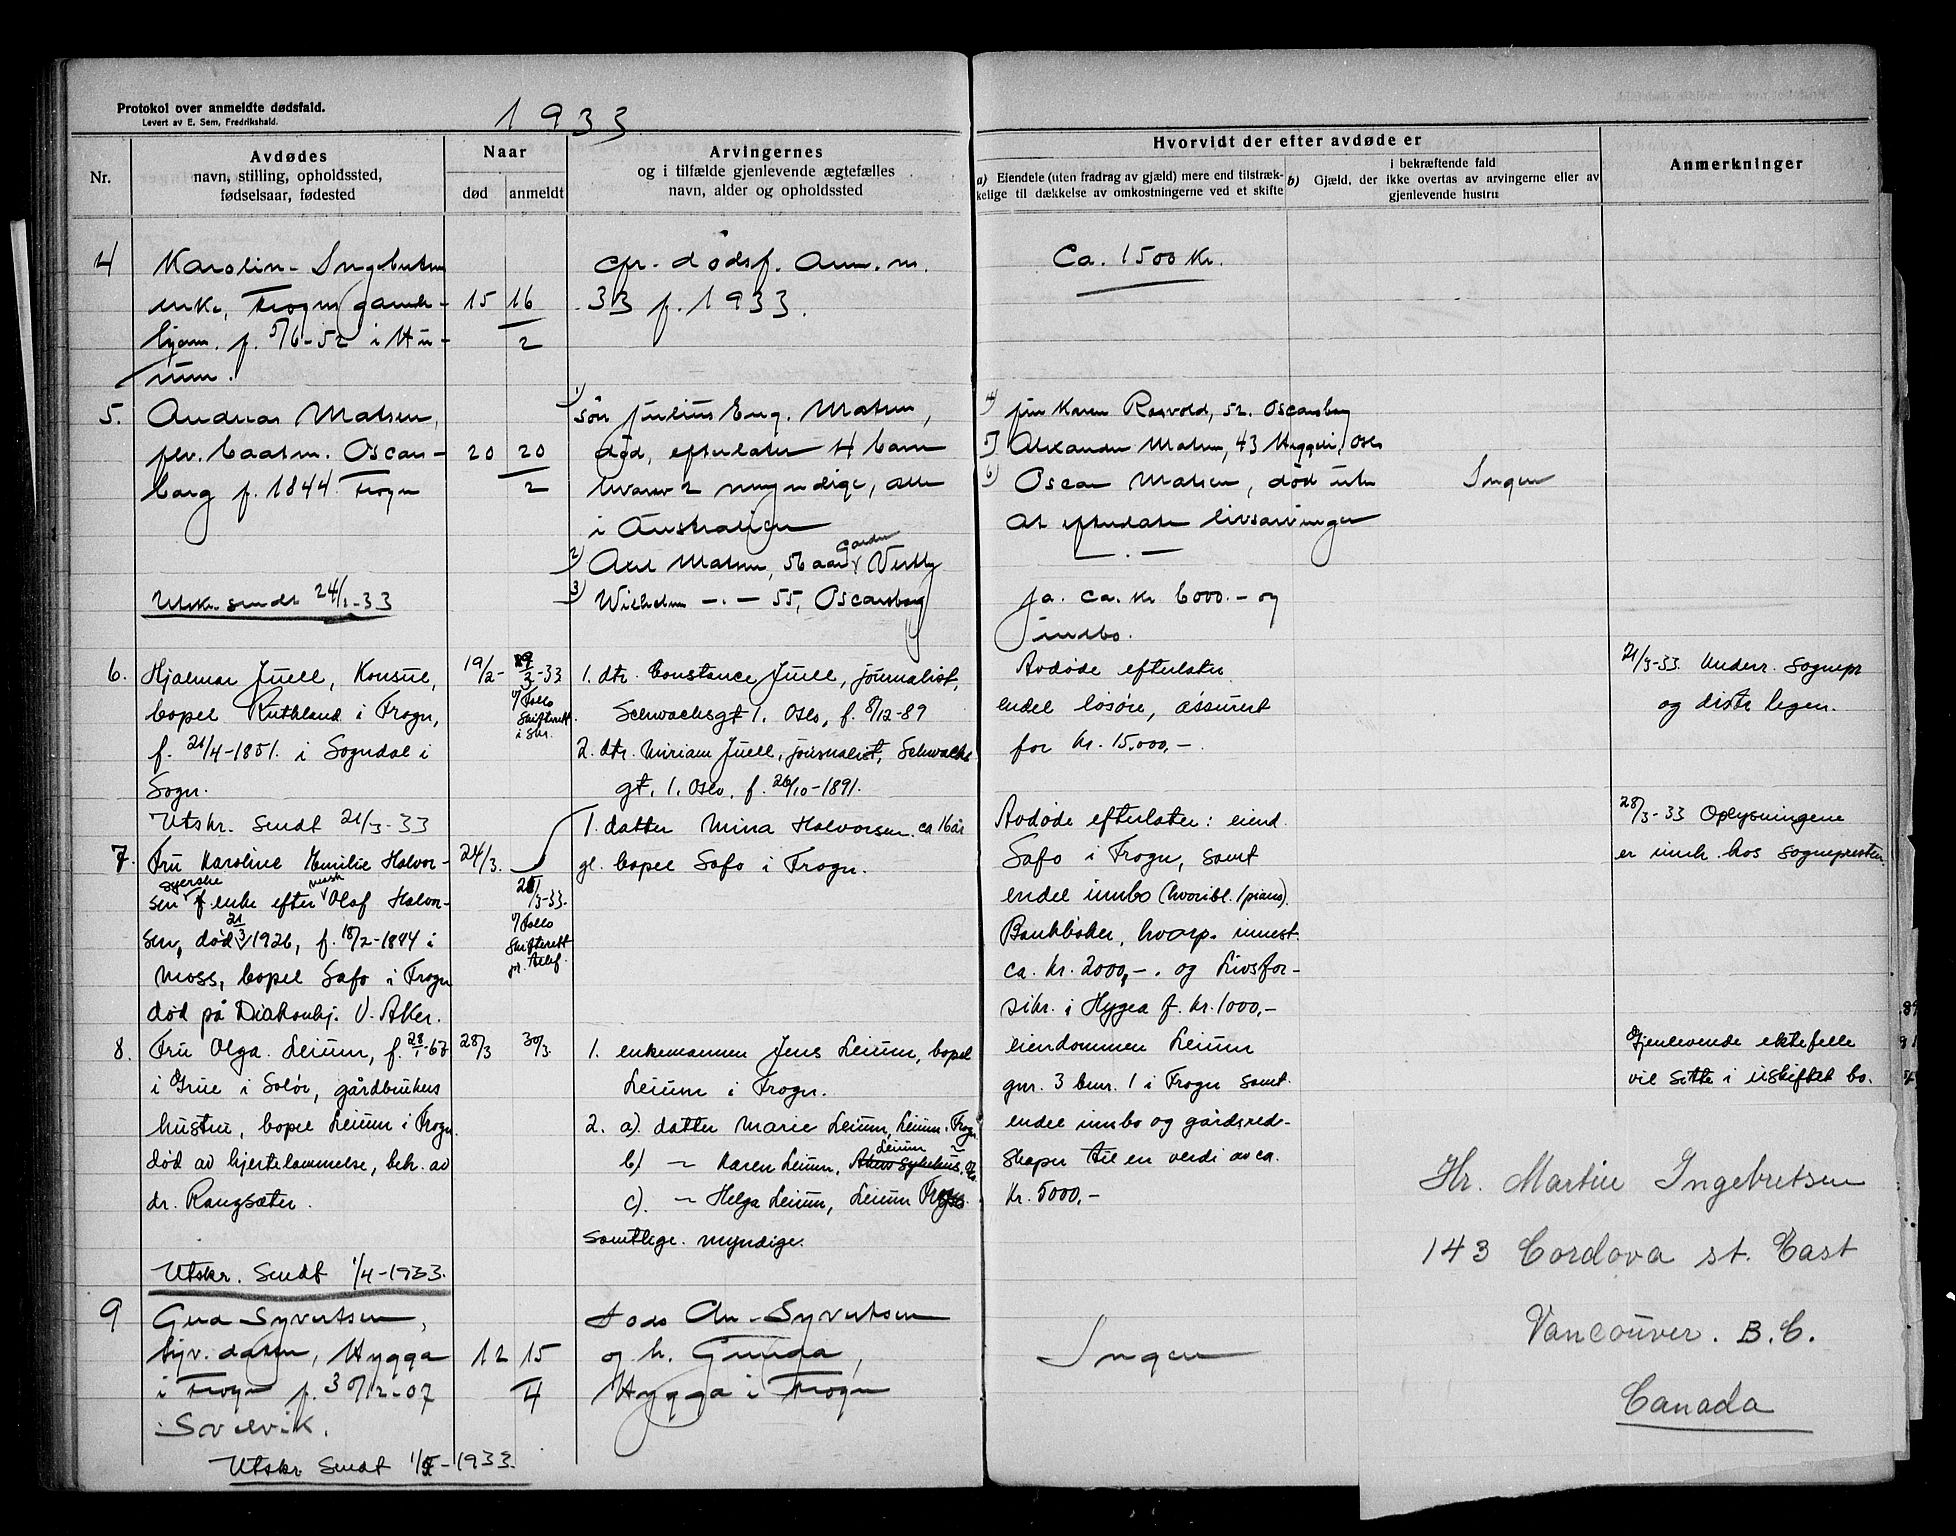 Protokol over anmeldte dødsfald.
Levert av E. Sem, Fredrikshald.
1933
Nr.
Avdødes
navn, stilling, opholdssted,
fødselsaar, fødested
Naar
død
anmeldt
Arvingernes
og i tilfælde gjenlevende ægtefælles
navn, alder og opholdssted
Hvorvidt der efter avdøde er
a) Eiendele (uten fradrag av gjæld) mere end tilstræk-
kelige til dækkelse av omkostningerne ved et skifte
b) Gjæld, der i bekræftende fald
ikke overtas av arvingerne eller av
gjenlevende hustru
Anmerkninger
4
Karolin- Ingebretsen
enke, Frogn gamle-
hjem. f. 5/6-52 i Hu-
rum.
15 16
2
cfr. dødsf. Anm. nr.
33 f. 1933.
Ca. 1500 kr.
5.
Andreas Matsen,
fhv. baatsm. Oscars-
borg f. 1844 Frogn
Utskr. sendt 24/2-33
20 20
2
1) søn Julius Eng. Matsen,
død, efterlater 4 barn
hvorav 2 umyndige, alle
i Australien
2) Axel Matsen, 56 aar, Garder Vestby
3) Wilhelm -.- 55, Oscarsborg
4) fru Karen Rosvold, 52. Oscarsborg
5) Alexander Matsen, 43 Oslo
6) Oscar Matsen, død uten
at efterlate livsarvinger
Ja. ca. kr 6000.- og
indbo.
Ingen
6.
Hjalmar Juell, Konsul,
bopel Ruthland i Frogn,
f. 21/4-1851. i Sogndal i
Sogn.
Utskr. Sendt 21/3-33
19/2-
3-33
v/ Follo
Skifterett
i skr.
1. dtr. Constance Juell, journalist,
Schwachsgt 1. Oslo, f. 8/12-89
2. dtr. Miriam Juell, journalist, Schwachs
gt. 1. Oslo, f. 26/10-1891.
Avdøde efterlater
endel løsøre, assurert
for kr. 15.000,-.
21/3-33 Underr. sognepr
og distr legen.
7.
Fru Karoline Emilie Halvor-
sen syerske enke efter mask Olaf Halvor-
sen, død 21/3 1926, f. 18/2-1874 i
Moss, bopel Safo i Frogn
død på Diakonhj. V. Aker.
24/3.
3-33.
v/ Follo
Skifterett
pr. Telef.
1. datter Mina Halvorsen. ca 16 år
gl. bopel Safo i Frogn.
Avdøde efterlater: eiend.
Safo i Frogn, samt
endel innbo (hvoribl. 1 piano).
Bankbøker, hvorp. innest.
ca. kr. 2000,-. og Livsfor-
sikr. i Hygea f. kr. 1000,-
28/3-33 Oplysningene
er innh. hos sognepresten
8.
Fru Olga. Leium, f. 28/1-63
i Grue i Solør, gårdbrukers
hustru, bopel Leium i Frogn.
død av hjertelammelse, beh. av
dr. Rangsæter.
Utskr. Sendt 1/4-1933.
28/3
30/3.
1. enkemannen Jens Leium, bopel
Leium i Frogn.
2. a). datter Marie Leium, Leium. Frogn
b) ~ Karen Leium, Leium
c). ~ Helga Leium, Leium Frogn
samtlige. myndige.
eiendommen Leium
gnr. 3 bnr. 1 i Frogn samt.
endel innbo og gårdsred-
skaper til en verdi av ca.
kr. 5000,-
Gjenlevende ektefelle
vil sitte i uskiftet bo.
9
Syvertsen,
syv. datter, Hygga
i Frogn f. 30/12-07
i Svelvik.
Utskr Sendt 1933.
12 15
4
Syvertsen
og h. Gunda,
Hygga i Frogn
Ingen
Hr. Martin Ingebretsen
143 Cordova st. East
Vancouver. B.C.
Canada